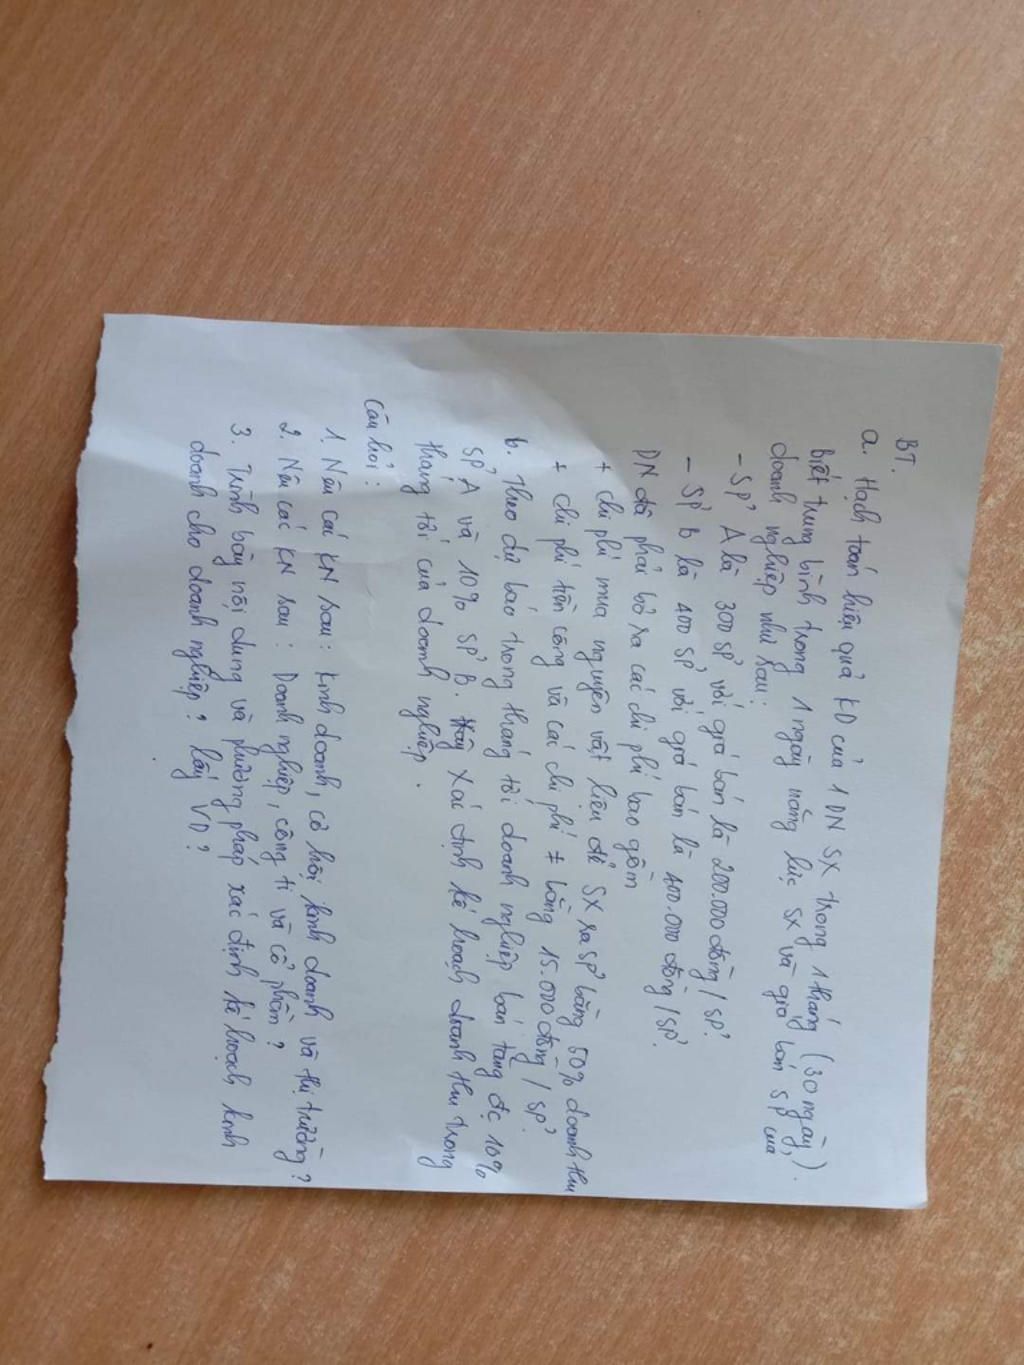 BT.
a. Hạch toán hiệu quả KD của 1 DN SX trong 1 tháng (30 ngày)
biết trung bình trong 1 ngày năng lực SX và giá bán sp của
doanh nghiệp như sau:
- SP' A là 300 SP' với giá bán là 200.000 đồng / SP'.
- SP' B là 400 SP' với giá bán là 100.000 đồng / SP'.
DN đã phải bỏ ra các chi phí bao gồm
+ chi phí mua nguyên vật liệu để SX ra SP' bằng 50% doanh thu
+ chi phí tiền công và các chi phí ≠ bằng 15.000 đồng / SP'.
b. Theo dự báo trong tháng tới doanh nghiệp bán tăng đc 10%
SP' A và 10% SP' B. Xác định kế hoạch doanh thu trong
tháng tới của doanh nghiệp.
Câu hỏi:
1. Nêu các KN sau: kinh doanh, cơ hội kinh doanh và thị trường?
2. Nêu các KN sau: Doanh nghiệp, công ti và cổ phần?
3. Trình bày nội dung và phương pháp xác định kế hoạch kinh
doanh cho doanh nghiệp? Lấy VD?